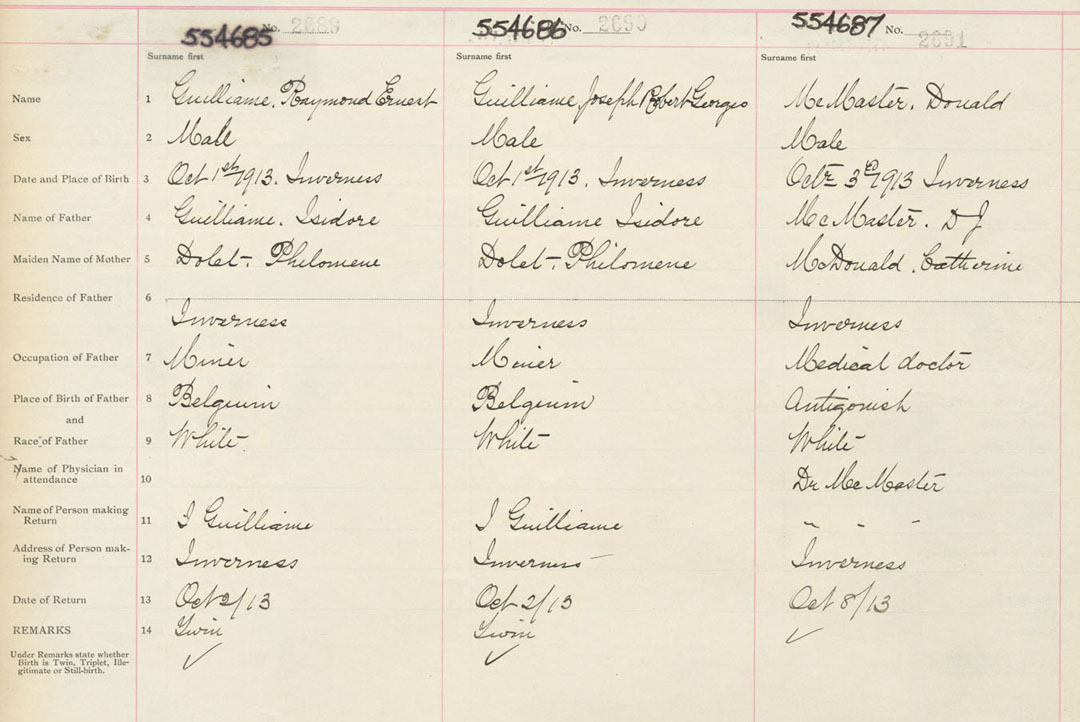 554685 No. 2689 554686 No. 2690 554687 No. 2691
Surname first Surname first Surname first
Name 1 Guilliame. Raymond Ernest Guilliame Joseph Robert Georges McMaster. Donald
Sex 2 Male Male Male
Date and Place of Birth 3 Oct 1st 1913. Inverness Oct 1st 1913. Inverness Octr 3rd 1913 Inverness
Name of Father 4 Guilliame. Isidore Guilliame Isidore McMaster. D J
Maiden Name of Mother 5 Dolet. Philomene Dolet. Philomene McDonald. Catherine
Residence of Father 6
Inverness Inverness Inverness
Occupation of Father 7 Miner Miner Medical doctor
Place of Birth of Father 8 Belguim Belguim Antigonish
and
Race of Father 9 White White White
Name of Physician in
attendance 10 Dr McMaster
Name of Person making
Return 11 I Guilliame I Guilliame " " "
Address of Person mak-
ing Return 12 Inverness Inverness Inverness
Date of Return 13 Oct 2/13 Oct 2/13 Oct 8/13
REMARKS 14 Twin Twin ✓
✓ ✓
Under Remarks state whether
Birth is Twin, Triplet, Ille-
gitimate or Still-birth.